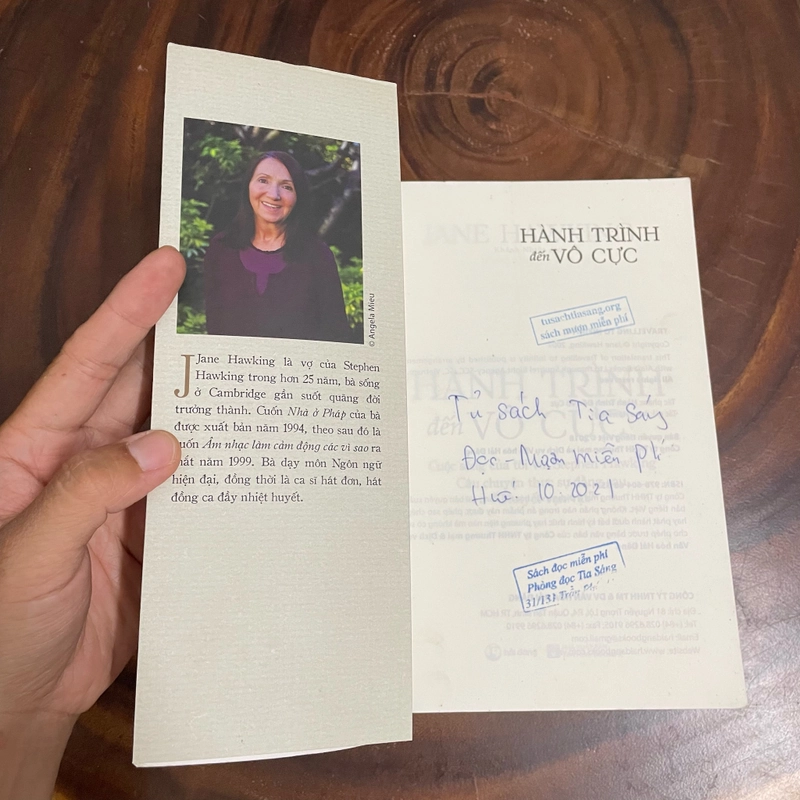 © Angela Mieu
Jane Hawking là vợ của Stephen
Hawking trong hơn 25 năm, bà sống
ở Cambridge gần suốt quãng đời
trưởng thành. Cuốn Nhà ở Pháp của bà
được xuất bản năm 1994, theo sau đó là
cuốn Âm nhạc làm cảm động các vì sao ra
mắt năm 1999. Bà dạy môn Ngôn ngữ
hiện đại, đồng thời là ca sĩ hát đơn, hát
đồng ca đầy nhiệt huyết.
HÀNH TRÌNH
đến VÔ CỰC
tusachtiasang.org
sách mượn miễn phí
Tủ sách Tia Sáng
Đọc - Mượn miễn phí
Huế. 10.2021
Sách đọc miễn phí
Phòng đọc Tia Sáng
31/131 Trần Phú